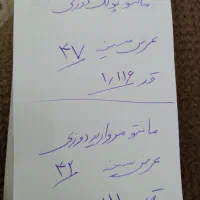 مانتو پولک دوزی
عرض سینه ۴۷
قد ۱/۱۱۶
مانتو مروارید دوزی
عرض سینه ۴۲
قد